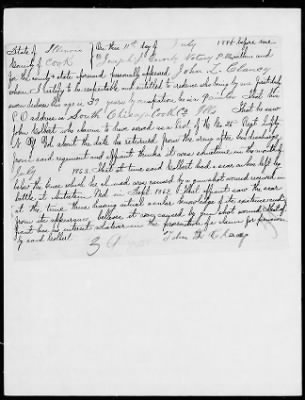 State of Illinois
County of Cook
On this 11th day of July 1886 before me
Joseph H. Notary Public within and
for the county & state aforesaid personally appeared John L. Clancy
whom I certify to be respectable and entitled to credence who being by me first duly
sworn declares his age is 39 years by occupation he is a that his
P.O. address is South Chicago Cook Co Ills that he saw
John Colbert who claims to have served as a Pvt of Co. 25" Regt
N.Y. Vol about the date he returned from the army after his discharge
from said regiment and affiant thinks it was sometime in the month of
July 1863 That at time said Colbert had a scar when left by
what the time which he claimed was caused by a gunshot wound received in
battle at Antietam Md. on Sept. 1862 & that affiant saw the scar
at the time thus having actual similar knowledge of its existence and
from its appearance believes it was caused by gun shot wound That af-
fiant has no interest whatever in the prosecution of a claim for pension
by said Colbert
John L. Clancy